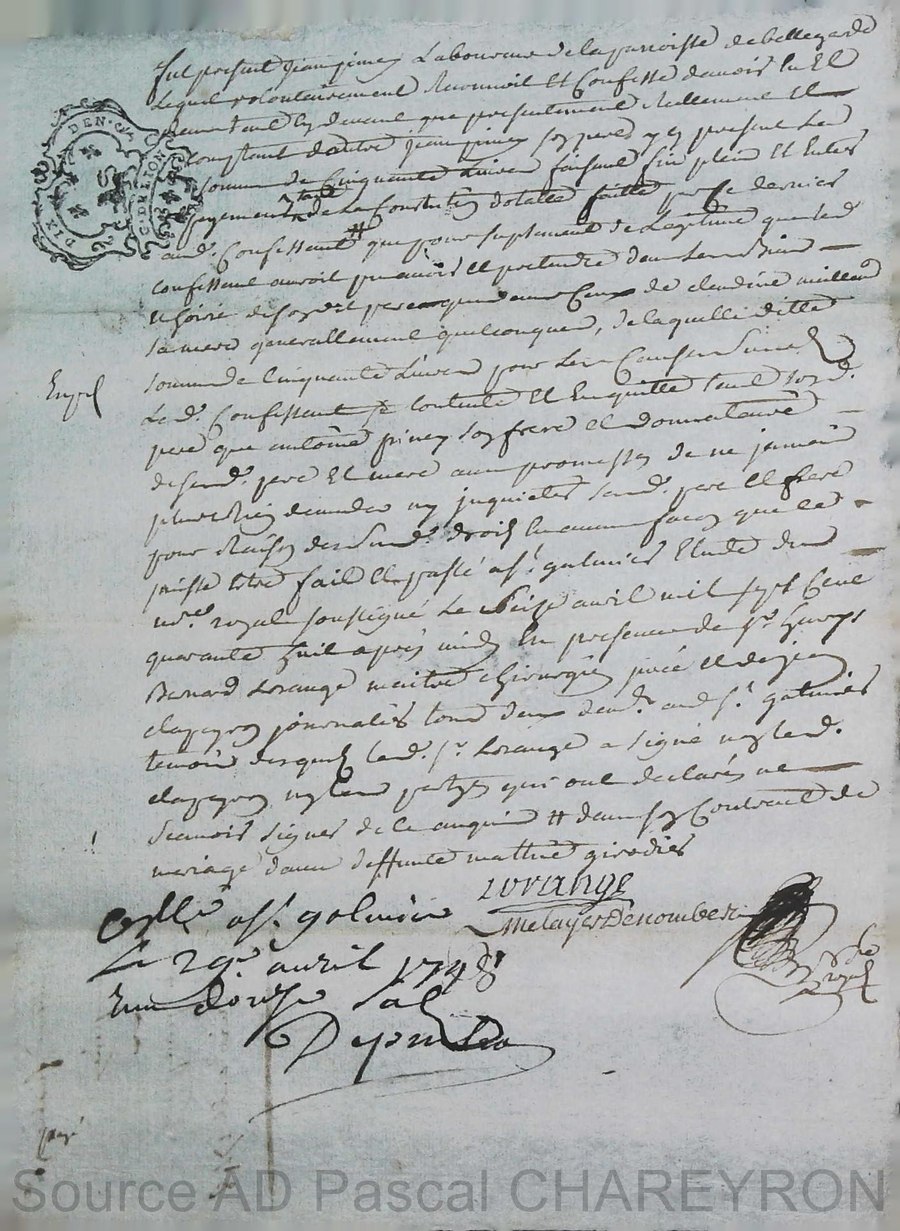 DIX DEN. GEN. LYON
fut present Jean piney Laboureur de la parroisse de bellegarde
Lequel volontairement Reconnoit Et Confesse d'avoir eu Et
Receu tant cy devant que presentement Reellement Et
comptant d'autre Jean piney son pere y cy present La
somme de Cinquante Livres faisant fin plein Et Entier
payement de la Constitution dotalle faitte par ce dernier
aud. Confessant # que pour suplement de Legitime que led
confessant auroit pu avoir Et pretendre dans Les biens
de son dit pere que dans Ceux de claudine
sa mere generallement quelconques, de laquelle ditte
somme de Cinquante Livres pour Les Causes Susd
Led. Confessant se Contente Et En quitte tant sond.
pere que antoine piney son frere Et donnataire
de sesd. pere Et mere avec promesse de ne jamais
plus Rien demander ny inquieter sesd. pere Et frere
pour Raison des Susd. droits En aucune façon que Ce
puisse Estre fait Et passé a St. galmier Etude du
nore. royal soussigné Le Seize avril mil sept Cent
quarante huit apres midy En presence de Sr.
Benard Lorange maitre chirurgien juré Et de Jean
clapeyron journalier tous deux dud. St. galmier
temoins desquels led. Sr. Lorange a signé non led.
clapeyron ny les partyes qui ont declarés ne
scavoir signer de ce enquis # dans son Contract de
mariage d'avec deffunte mathie girodier
Lorange
Melayer Denombel
Conllé a St. galmier
Le 29e. avril 1748
Reçu douze sol
Source AD Pascal CHAREYRON